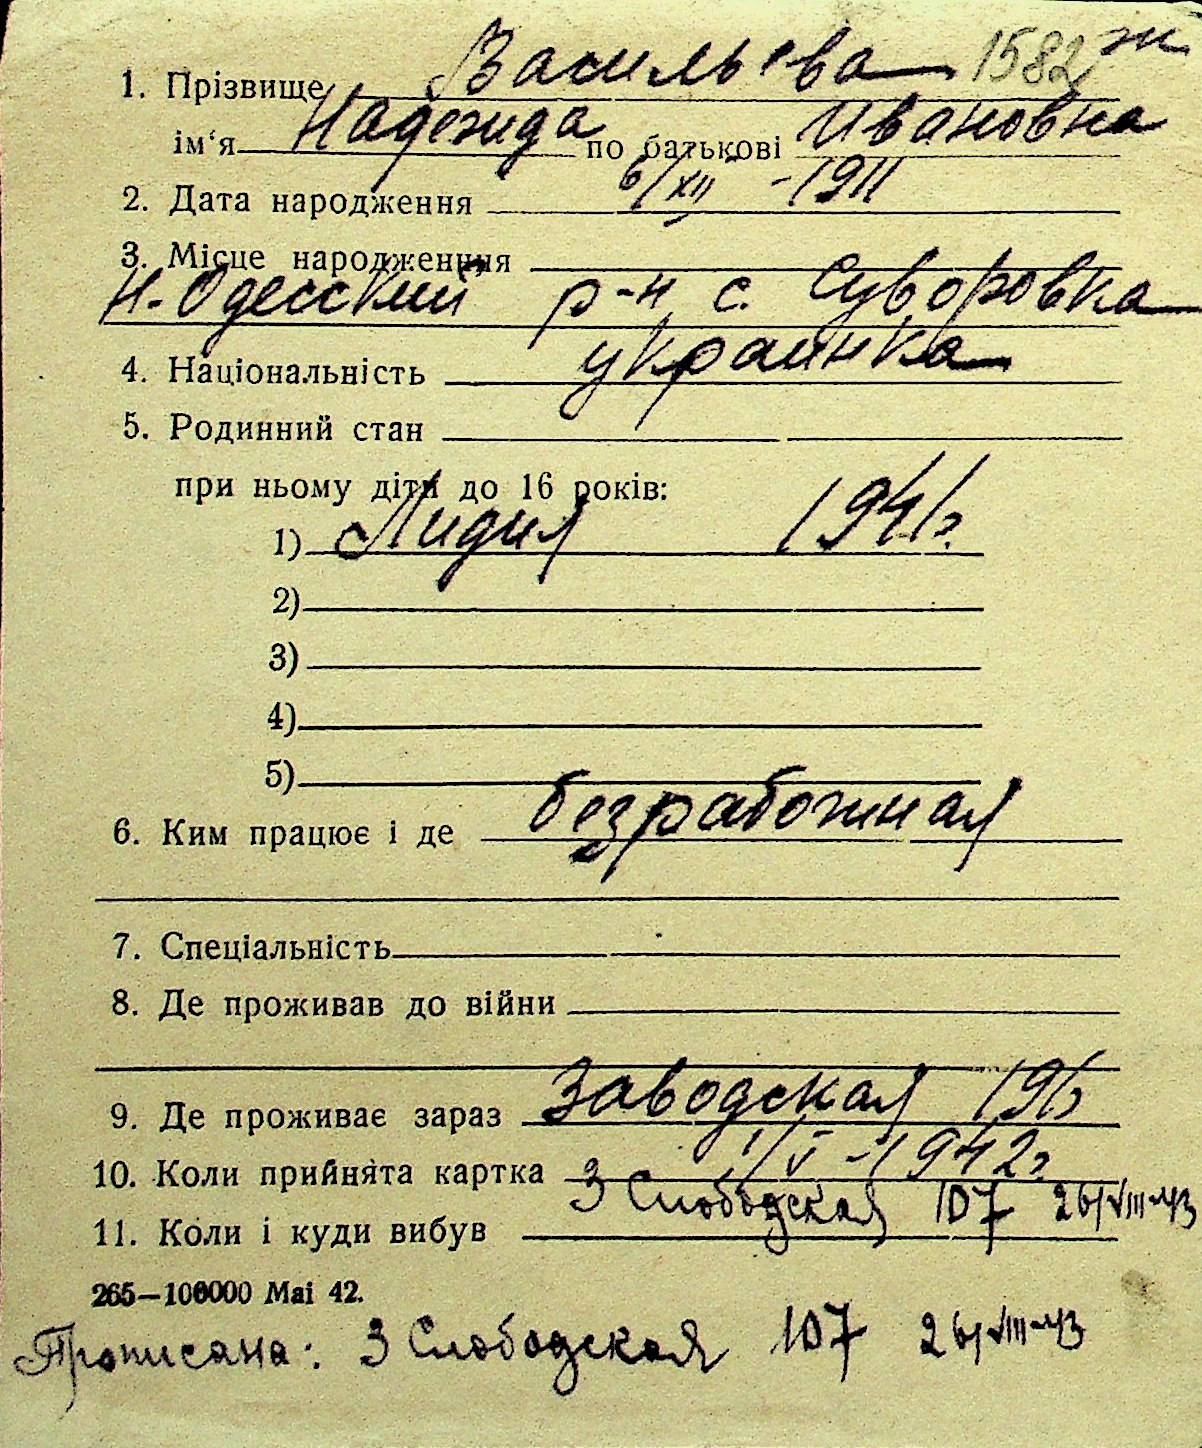 1. Прізвище Васильева 1582 ж
ім'я Надежда по батькові Ивановна
2. Дата народження 6/XII - 1911
3. Місце народження
Н.-Одесский р-н с. Суворовка
4. Національність украинка
5. Родинний стан
при ньому діти до 16 років:
1) Лидия 1941г.
2)
3)
4)
5)
6. Ким працює і де безработная
7. Спеціальність
8. Де проживав до війни
9. Де проживає зараз Заводская
10. Коли прийнята картка 1/V - 1942г.
11. Коли і куди вибув 3 Слободская 107 26/VIII-43
265—100000 Mai 42.
Прописана: 3 Слободская 107 26/VIII-43